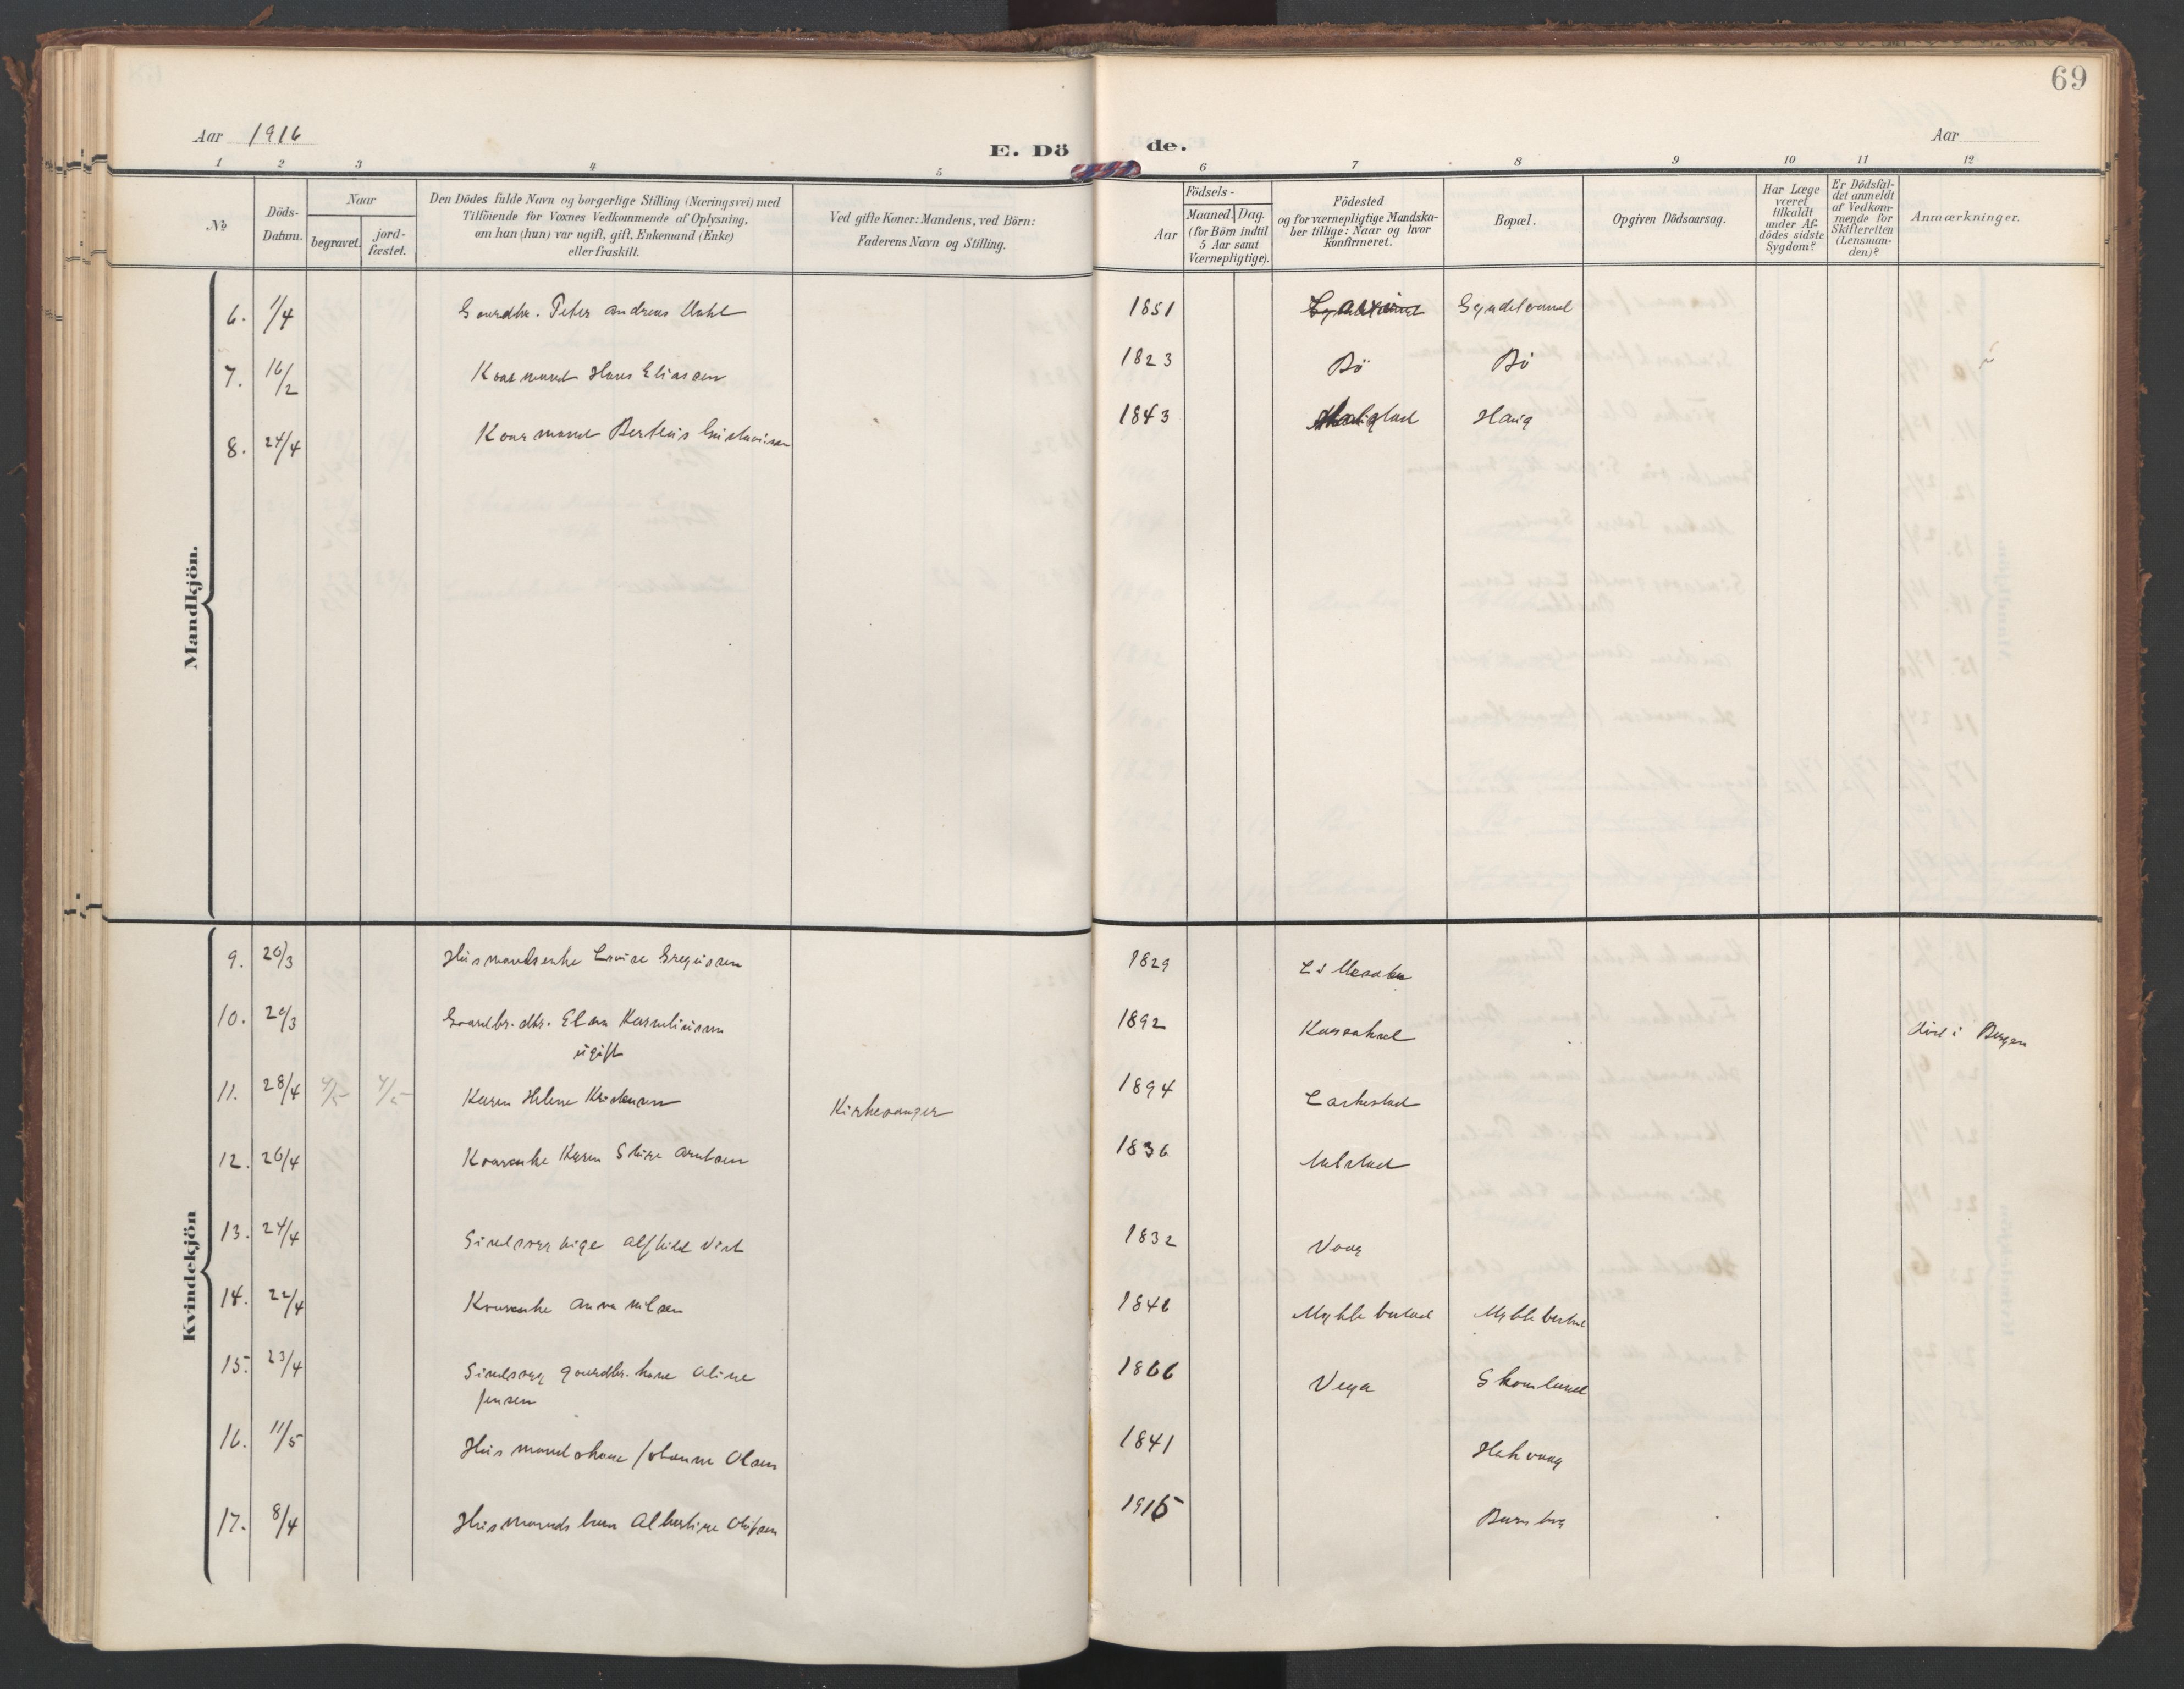 69
Aar 1916
E. Dö
de.
Aar
1 2 3 4 5 6 7 8 9 10 11 12
No
Döds-
Datum.
Naar
begravet.
jord-
fæstet.
Den Dödes fulde Navn og borgerlige Stilling (Næringsvei) med
Tilföiende for Voxnes Vedkommende af Oplysning,
om han (hun) var ugift, gift, Enkemand (Enke)
eller fraskilt.
Ved gifte Koner: Mandens, ved Börn:
Faderens Navn og Stilling.
Födsels-
Aar
Maaned. Dag.
(for Börn indtil
5 Aar samt
Værnepligtige).
Födested
og for værnepligtige Mandska-
ber tillige: Naar og hvor
Konfirmeret.
Bopæl.
Opgiven Dödsaarsag.
Har Læge
været
tilkaldt
under Af-
dödes sidste
Sygdom?
Er Dödsfal-
det anmeldt
af Vedkom-
mende for
Skifteretten
(Lensman-
den)?
Anmærkninger.
Mandkjön.
6. 1/4 Gaardbr. Peter Andreas Dahl 1851
7. 16/2 Kaarmand Hans Eliassen 1823 Bö Bö
8. 24/4 Kaarmand Berteus Gustavisen 1843 Haug
Kvindekjön
9. 20/3 Husmandsenke Lovise Gregusen 1829
10. 20/3 Gaardbr. dtr. Elen Karneliusen 1892 död i Bergen
ugift
11. 28/4 4/5 4/5 Karen Helene Kristensen Kirkesanger 1894
12. 26/4 Kaarenke Karen Stine Arntsen 1836
13. 24/4 Sindssyg pige Alfhild Vist 1832 Vaag
14. 22/4 Kaarenke Anna Nilsen 1846 Myklebustad Myklebustad
15. 23/4 Sindssyg gaardbr. kone Aline 1866 Vega Skomland
Jensen
16. 11/5 Husmandskone Johanne Olsen 1841 Hakvaag
17. 8/4 Husmands barn Albertine Olufsen 1915